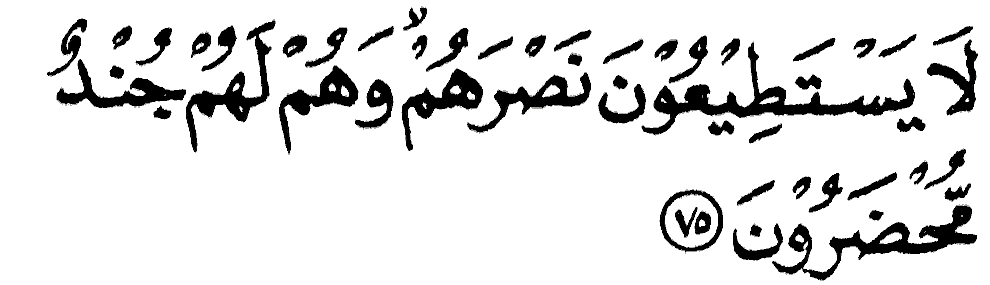 لَا يَسْتَطِيْعُوْنَ نَصْرَهُمْ ۙ وَهُمْ لَهُمْ جُنْدٌ
مُّحْضَرُوْنَ ﴿٧٥﴾